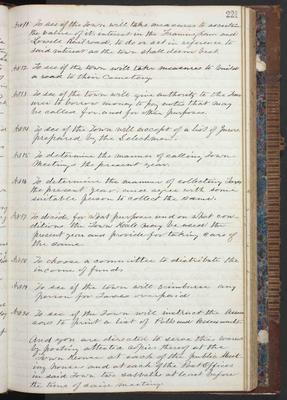 221
Art 11 To see if the Town will take measures to ascertain
the value of its interest in the Framingham and
Lowell Railroad, to do or act in reference to
said interest as the town shall deem best
Art 12 To see if the town will take measures to build
a road to their Cemetery
Art 13 To see if the town will give authority to the Treas
urer to borrow money to pay notes that may
be called for, and for other purposes.
Art 14 To see if the Town will accept of a list of Jurors
prepared by the Selectmen.
Art 15 To determine the manner of calling Town
Meetings the present year.
Art 16 To determine the manner of collecting Taxes
the present year, and agree with some
suitable person to collect the same.
Art 17 To decide for what purposes and on what con
ditions the Town House may be used the
present year and provide for taking care of
the same
Art 18 To choose a committee to distribute the
income of funds
Art 19 To see if the town will reimburse any
person for Taxes overpaid
Art 20 To see if the Town will instruct the Asses
sors to print a list of Polls and Assessments.
And you are directed to serve this warrant
by posting attested copies thereof at the
Town House at each of the public Meet
ing houses and at each of the Post Offices
in said Town two sabbaths at least before
the time of said meeting